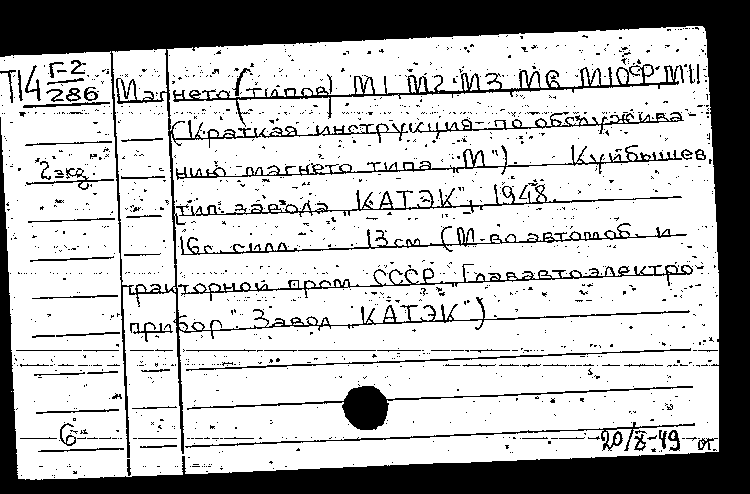 П14 Г-2
286
Магнето (типов) М1, М2, М3, М6, М10Ф, М11
(Краткая инструкция по обслужива-
2 экз.
нию магнето типа „М"). Куйбышев,
тип. завода „КАТЭК", 1948.
16 с. с илл. 13 см. (М-во автомоб. и
тракторной пром. СССР „Глававтоэлектро-
прибор". Завод „КАТЭК").
6
20/X-49